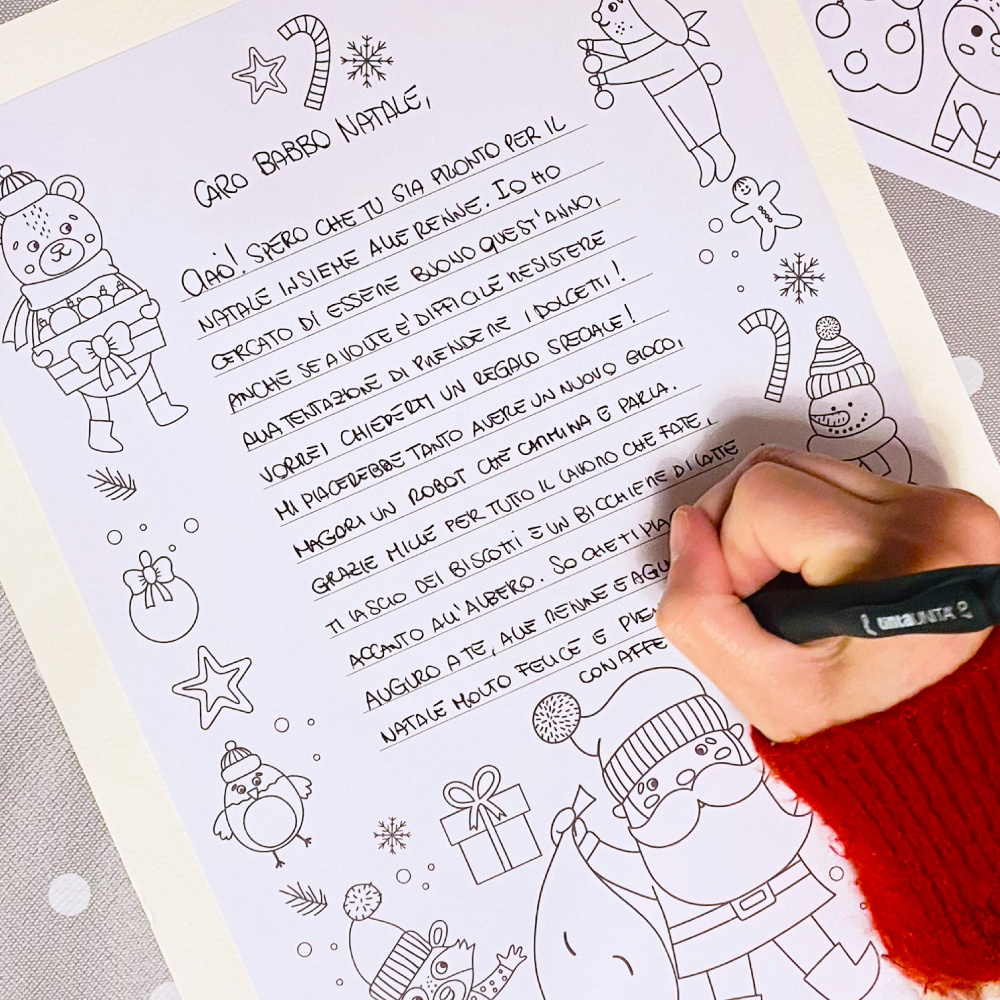 CARO BABBO NATALE,
CIAO! SPERO CHE TU SIA PRONTO PER IL
NATALE INSIEME ALLE RENNE. IO HO
CERCATO DI ESSERE BUONO QUEST'ANNO,
ANCHE SE A VOLTE E' DIFFICILE RESISTERE
ALLA TENTAZIONE DI PRENDERE I DOLCETTI!
VORREI CHIEDERTI UN REGALO SPECIALE!
MI PIACEREBBE TANTO AVERE UN NUOVO GIOCO,
MAGARI UN ROBOT CHE CAMMINA E PARLA.
GRAZIE MILLE PER TUTTO IL LAVORO CHE FATE,
TI LASCIO DEI BISCOTTI E UN BICCHIERE DI LATTE
ACCANTO ALL'ALBERO. SO CHE TI
AUGURO A TE, ALLE RENNE E AGLI
NATALE MOLTO FELICE E
CON